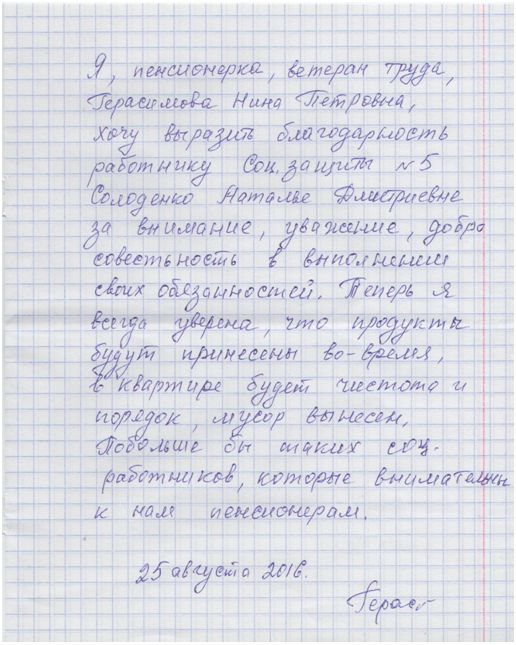 Я, пенсионерка, ветеран труда,
Герасимова Нина Петровна,
хочу выразить благодарность
работнику Соц. защиты №5
Солоденко Наталье Дмитриевне
за внимание, уважение, добро
совестьность в выполнении
своих обязанностей. Теперь я
всегда уверена, что продукты
будут принесены во-время,
в квартире будет чистота и
порядок, мусор вынесен,
Побольше бы таких соц.
работников, которые внимательны
к нам пенсионерам.
25 августа 2016.
Герас